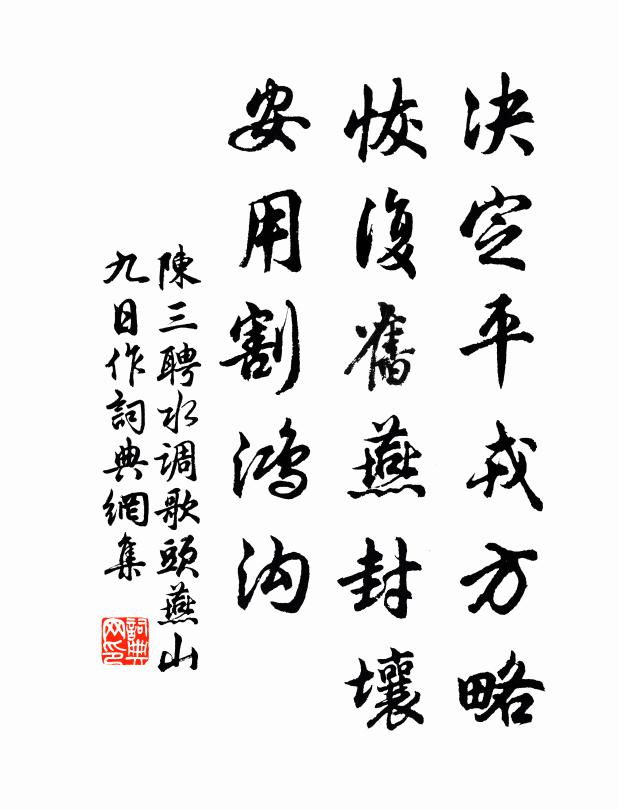 决定平戎方略
恢復舊燕封壤
安用割鸿沟
陳三聘水调歌頭燕山
九日作詞典網集
詞典
网印